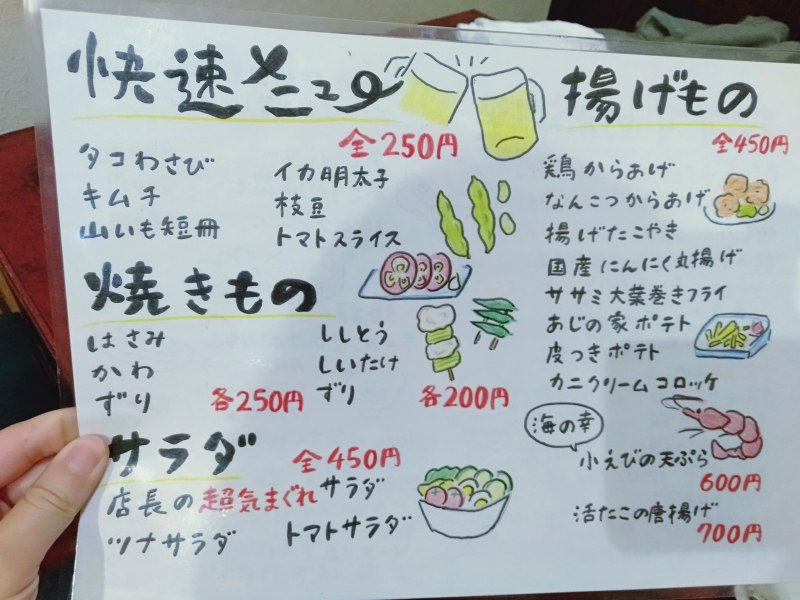 快速メニュー
全250円
タコわさび
キムチ
山いも短冊
イカ明太子
枝豆
トマトスライス
焼きもの
はさみ
かわ
ずり
各250円
ししとう
しいたけ
ずり
各200円
サラダ
全450円
店長の超気まぐれサラダ
ツナサラダ
トマトサラダ
揚げもの
全450円
鶏からあげ
なんこつからあげ
揚げたこやき
国産にんにく丸揚げ
ササミ大葉巻きフライ
あじの家ポテト
皮つきポテト
カニクリームコロッケ
海の幸
小えびの天ぷら
600円
活たこの唐揚げ
700円